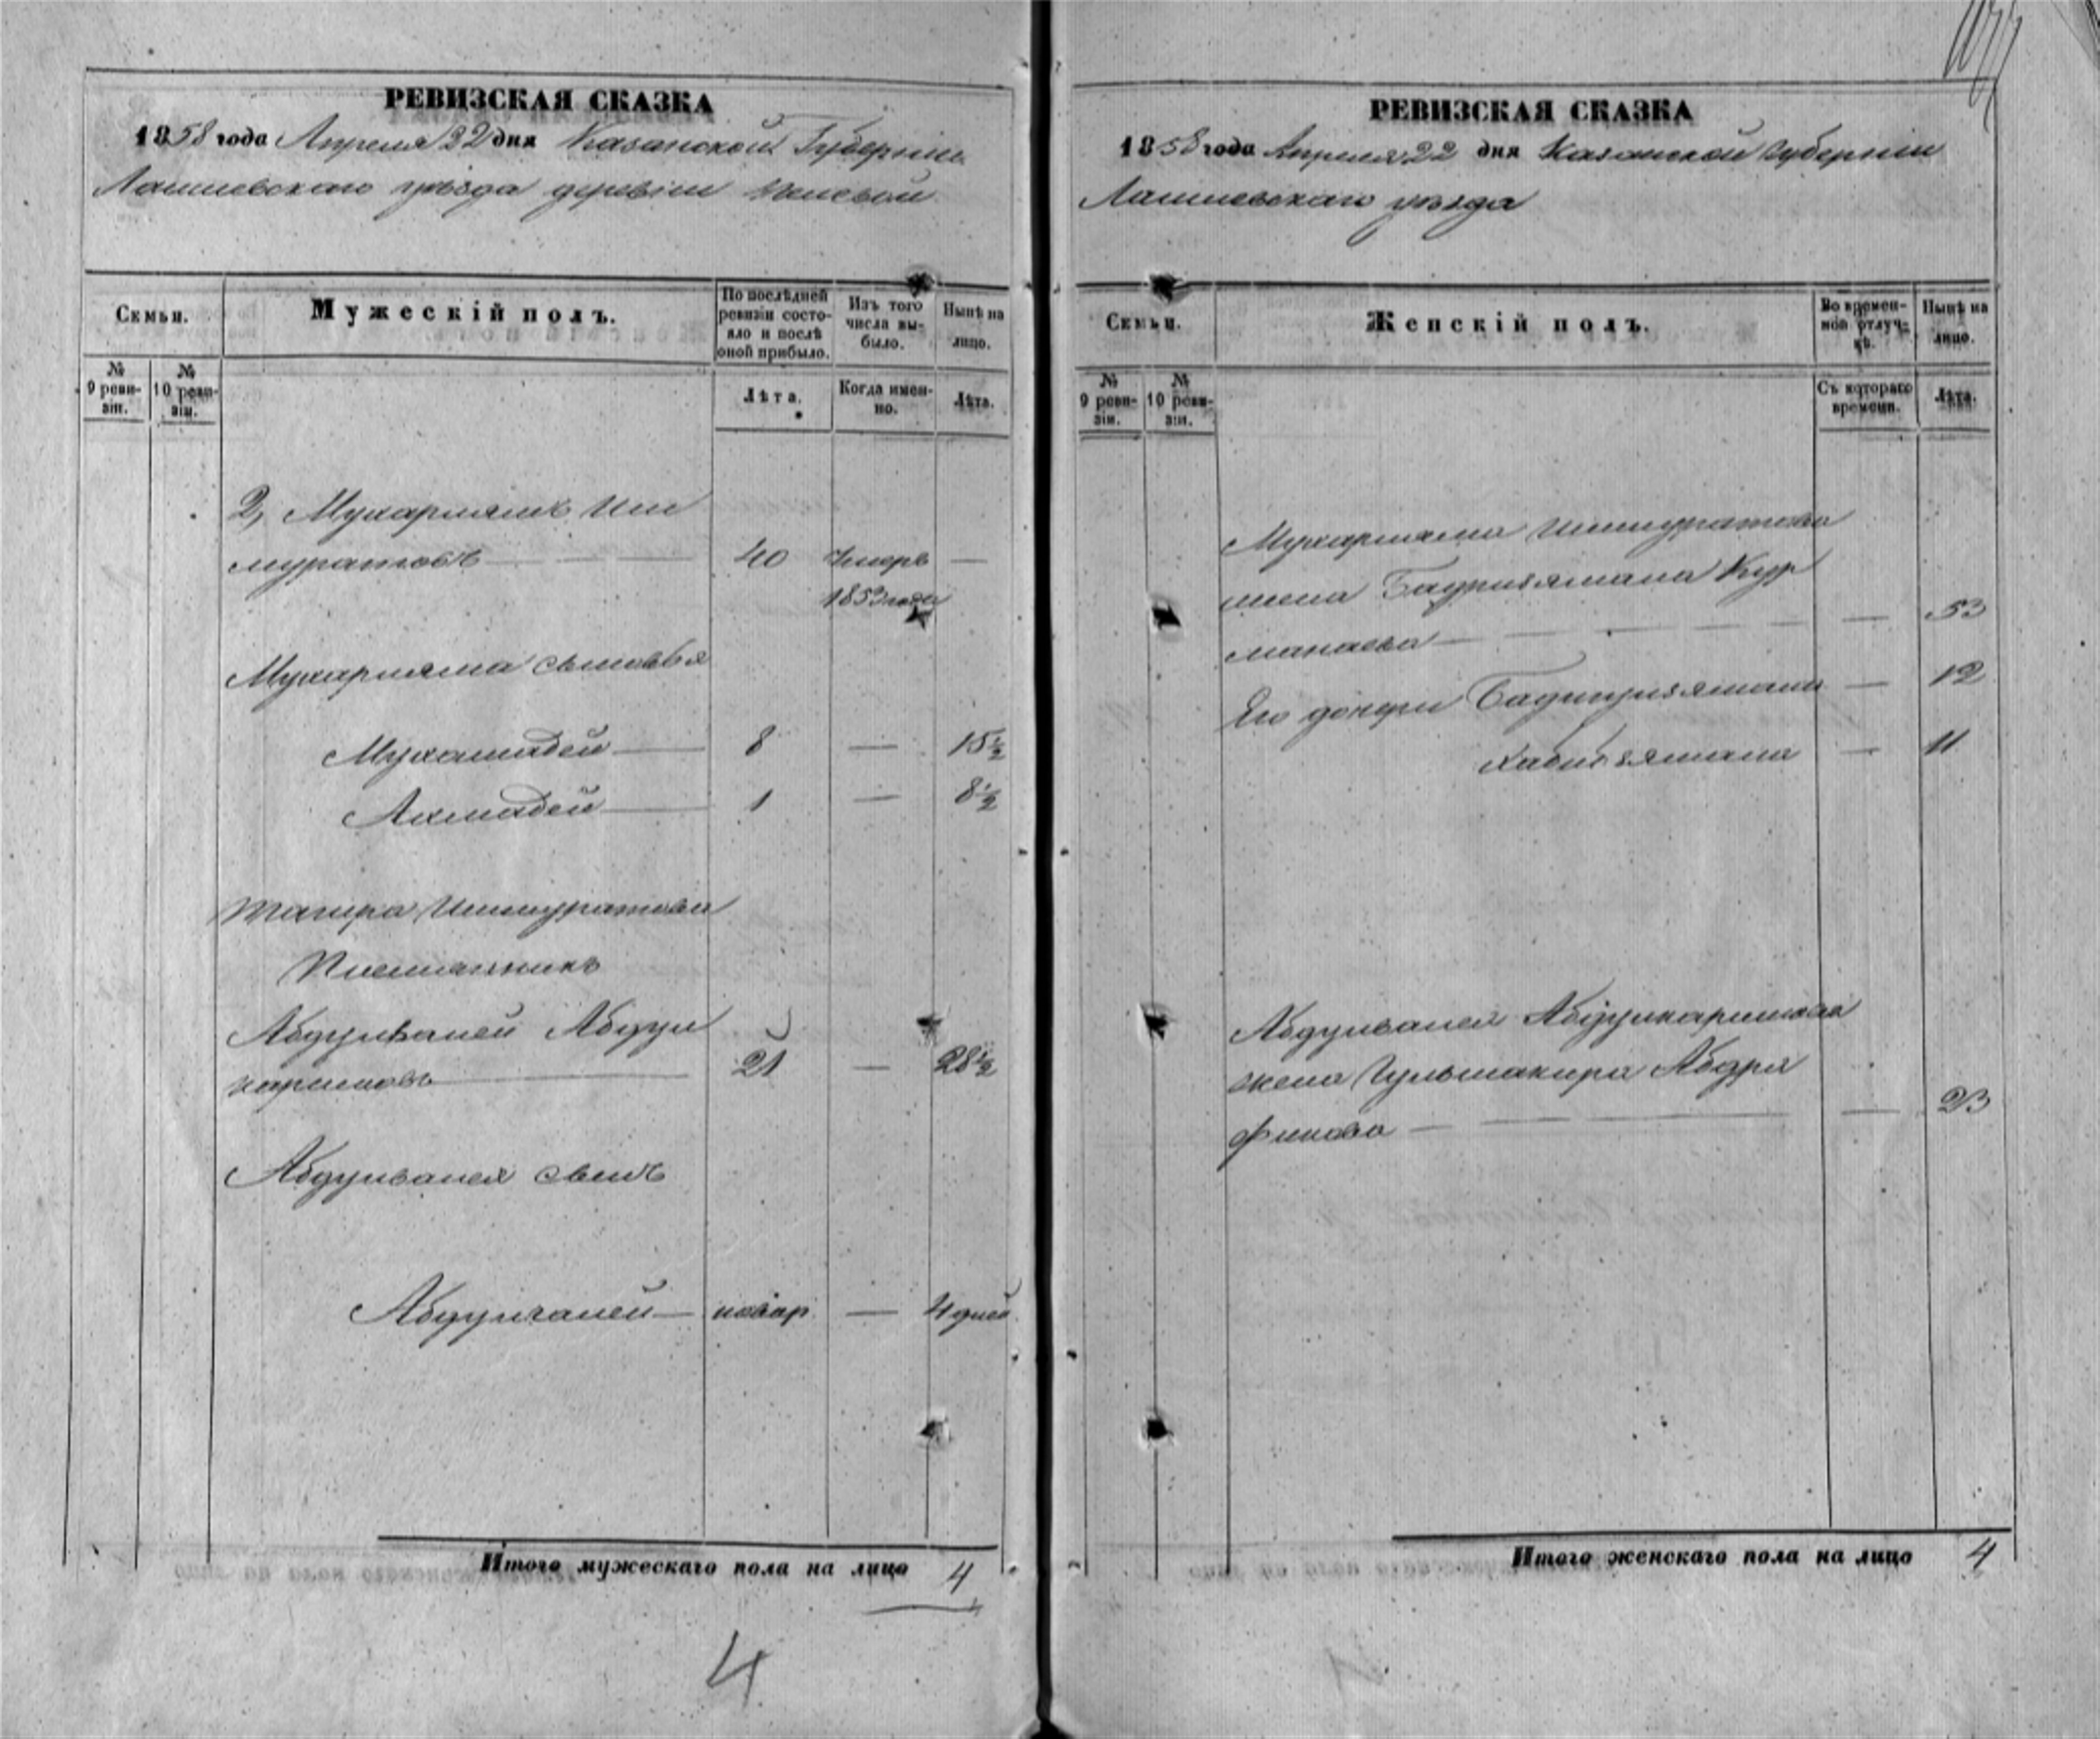 РЕВИЗСКАЯ СКАЗКА
1858 года Апреля 22 дня Казанской Губернии
Лаишевскаго уѣзда деревни
Семьи.
Мужескій полъ.
По послѣдней ревизіи состояло и послѣ оной прибыло.
Изъ того числа выбыло.
Нынѣ на лицо.
№ 9 ревизіи.
№ 10 ревизіи.
Лѣта.
Когда именно.
Лѣта.
2, Мухарлямъ Иш
муратовъ — 40 Умеръ —
1853 года
Мухарляма сыновья
Мухамадей — 8 — 15½
Ахмадей — 1 — 8½
Тагира Ишмуратова
Племянникъ
Абдулвалей Абдул
каримовъ — 21 — 28½
Абдулвалея сынъ
Абдулганей — новор. — 4 дней
Итого мужескаго пола на лицо 4
4
РЕВИЗСКАЯ СКАЗКА
1858 года Апреля 22 дня Казанской Губернии
Лаишевскаго уѣзда
Семьи.
Женскій полъ.
Во временной отлучкѣ.
Нынѣ на лицо.
№ 9 ревизіи.
№ 10 ревизіи.
Съ котораго времени.
Лѣта.
Мухарляма Ишмуратова
жена Бадризямала Кур
манаева — — 53
Его дочери — 12
Хабибзямала — 11
Абдулвалея Абдулкаримова
жена Гульшакира Абдря
фикова — — 23
Итого женскаго пола на лицо 4